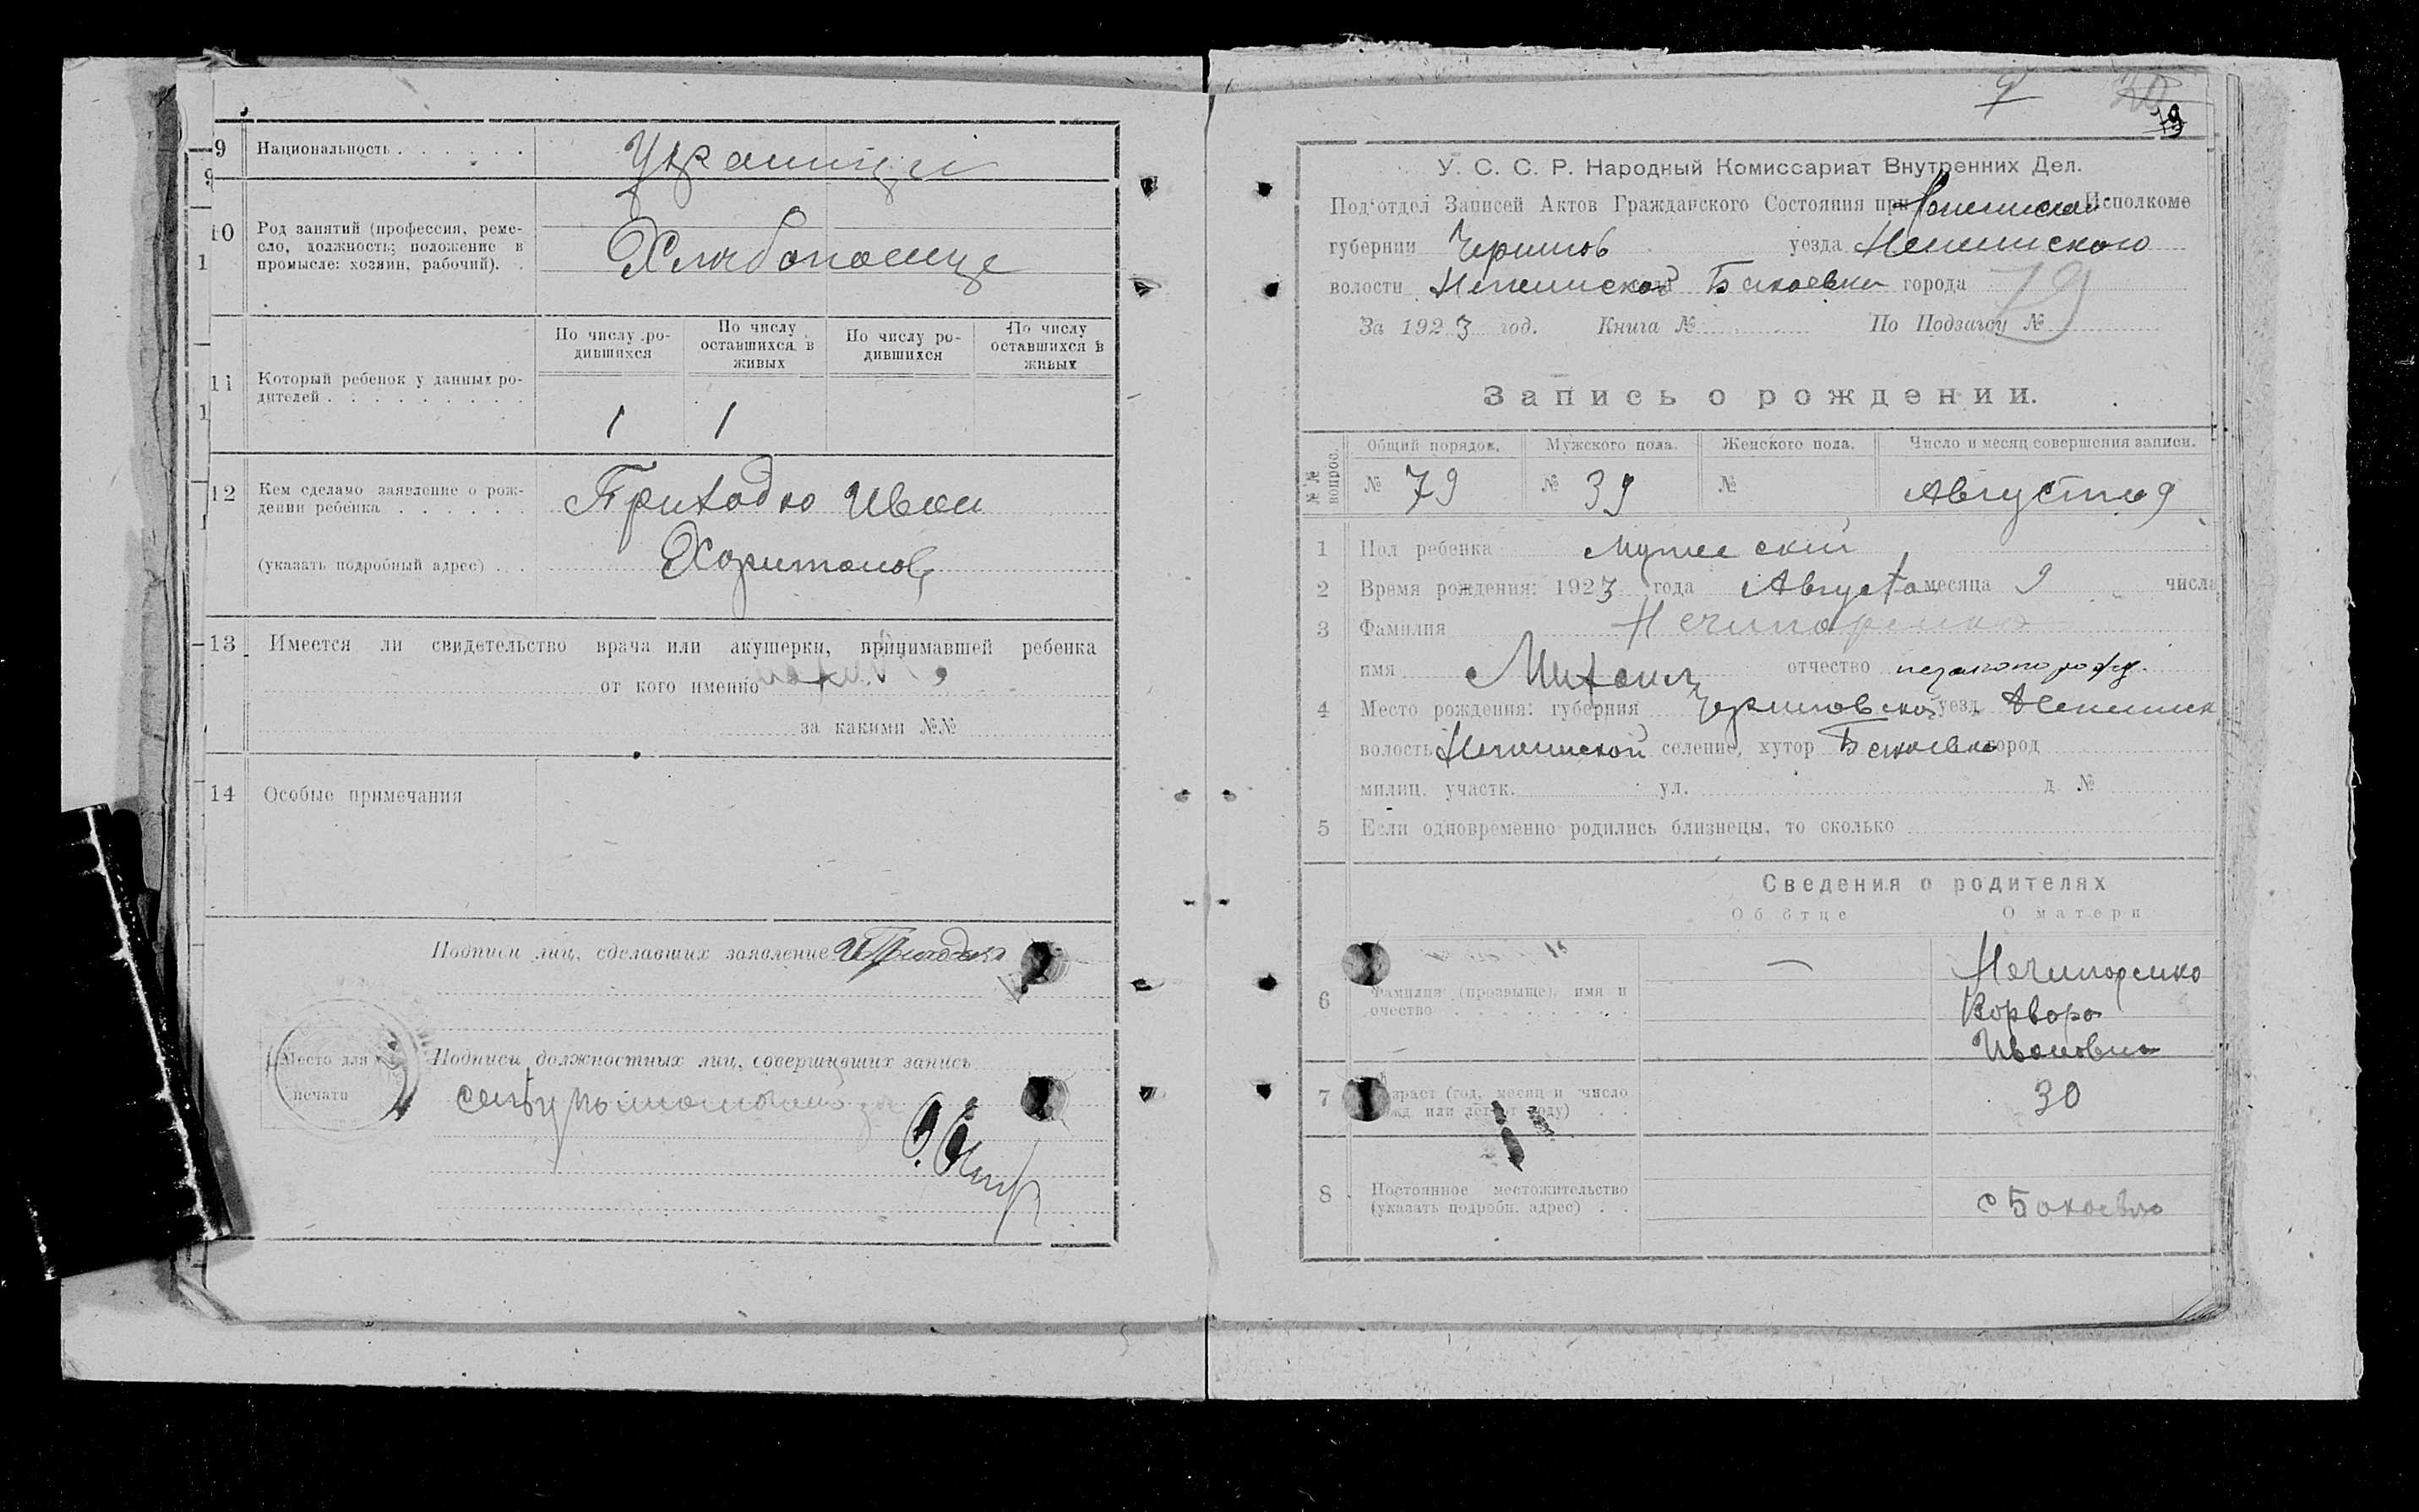 9 Национальность . . . . . . Украинци
10 Род занятий (профессия, реме-
сло, должность; положение в
промысле: хозяин, рабочий). .
Хлѣбопашце
По числу ро-
дившихся
По числу
оставшихся в
живых
По числу ро-
дившихся
По числу
оставшихся в
живых
11 Который ребенок у данных ро-
дителей . . . . . . . . .
1 1
12 Кем сделано заявление о рож-
дении ребенка . . . . . .
Приходко Иван
(указать подробный адрес) . . . Харитонов
13 Имеется ли свидетельство врача или акушерки, принимавшей ребенка
от кого именно
за какими №№
14 Особые примечания
Подписи лиц, сделавших заявление И Приходько
Место для
печати
Подписи должностных лиц, совершивших запись
9
19
У. С. С. Р. Народный Комиссариат Внутренних Дел.
Под‘отдел Записей Актов Гражданского Состояния при Исполкоме
губернии Чернигов уезда Нежинского
волости Нежинской города
79
За 1923 год. Книга № По Подзагсу №
Запись о рождении.
№№ вопрос.
Общий порядок. Мужского пола. Женского пола. Число и месяц совершения записи.
№ 79 № 39 № Августа 9
1 Пол ребенка Мужеский
2 Время рождения: 1923 года Августа месяца 9 числа
3 Фамилия Нечипоренко
имя Михаил отчество незаконорож.
4 Место рождения: губерния Черниговской уезд Нежинск
волость Нежинской селение, хутор город
милиц. участк. ул. д. №
5 Если одновременно родились близнецы, то сколько
Сведения о родителях
Об отце О матери
6 Фамилия (прозвыще), имя и
отчество . . . . . . . .
—
Нечипоренко
Ворвора
Ивановна
7 Возраст (год, месяц и число
рожд. или лет от роду) . .
30
8 Постоянное местожительство
(указать подробн. адрес) . .